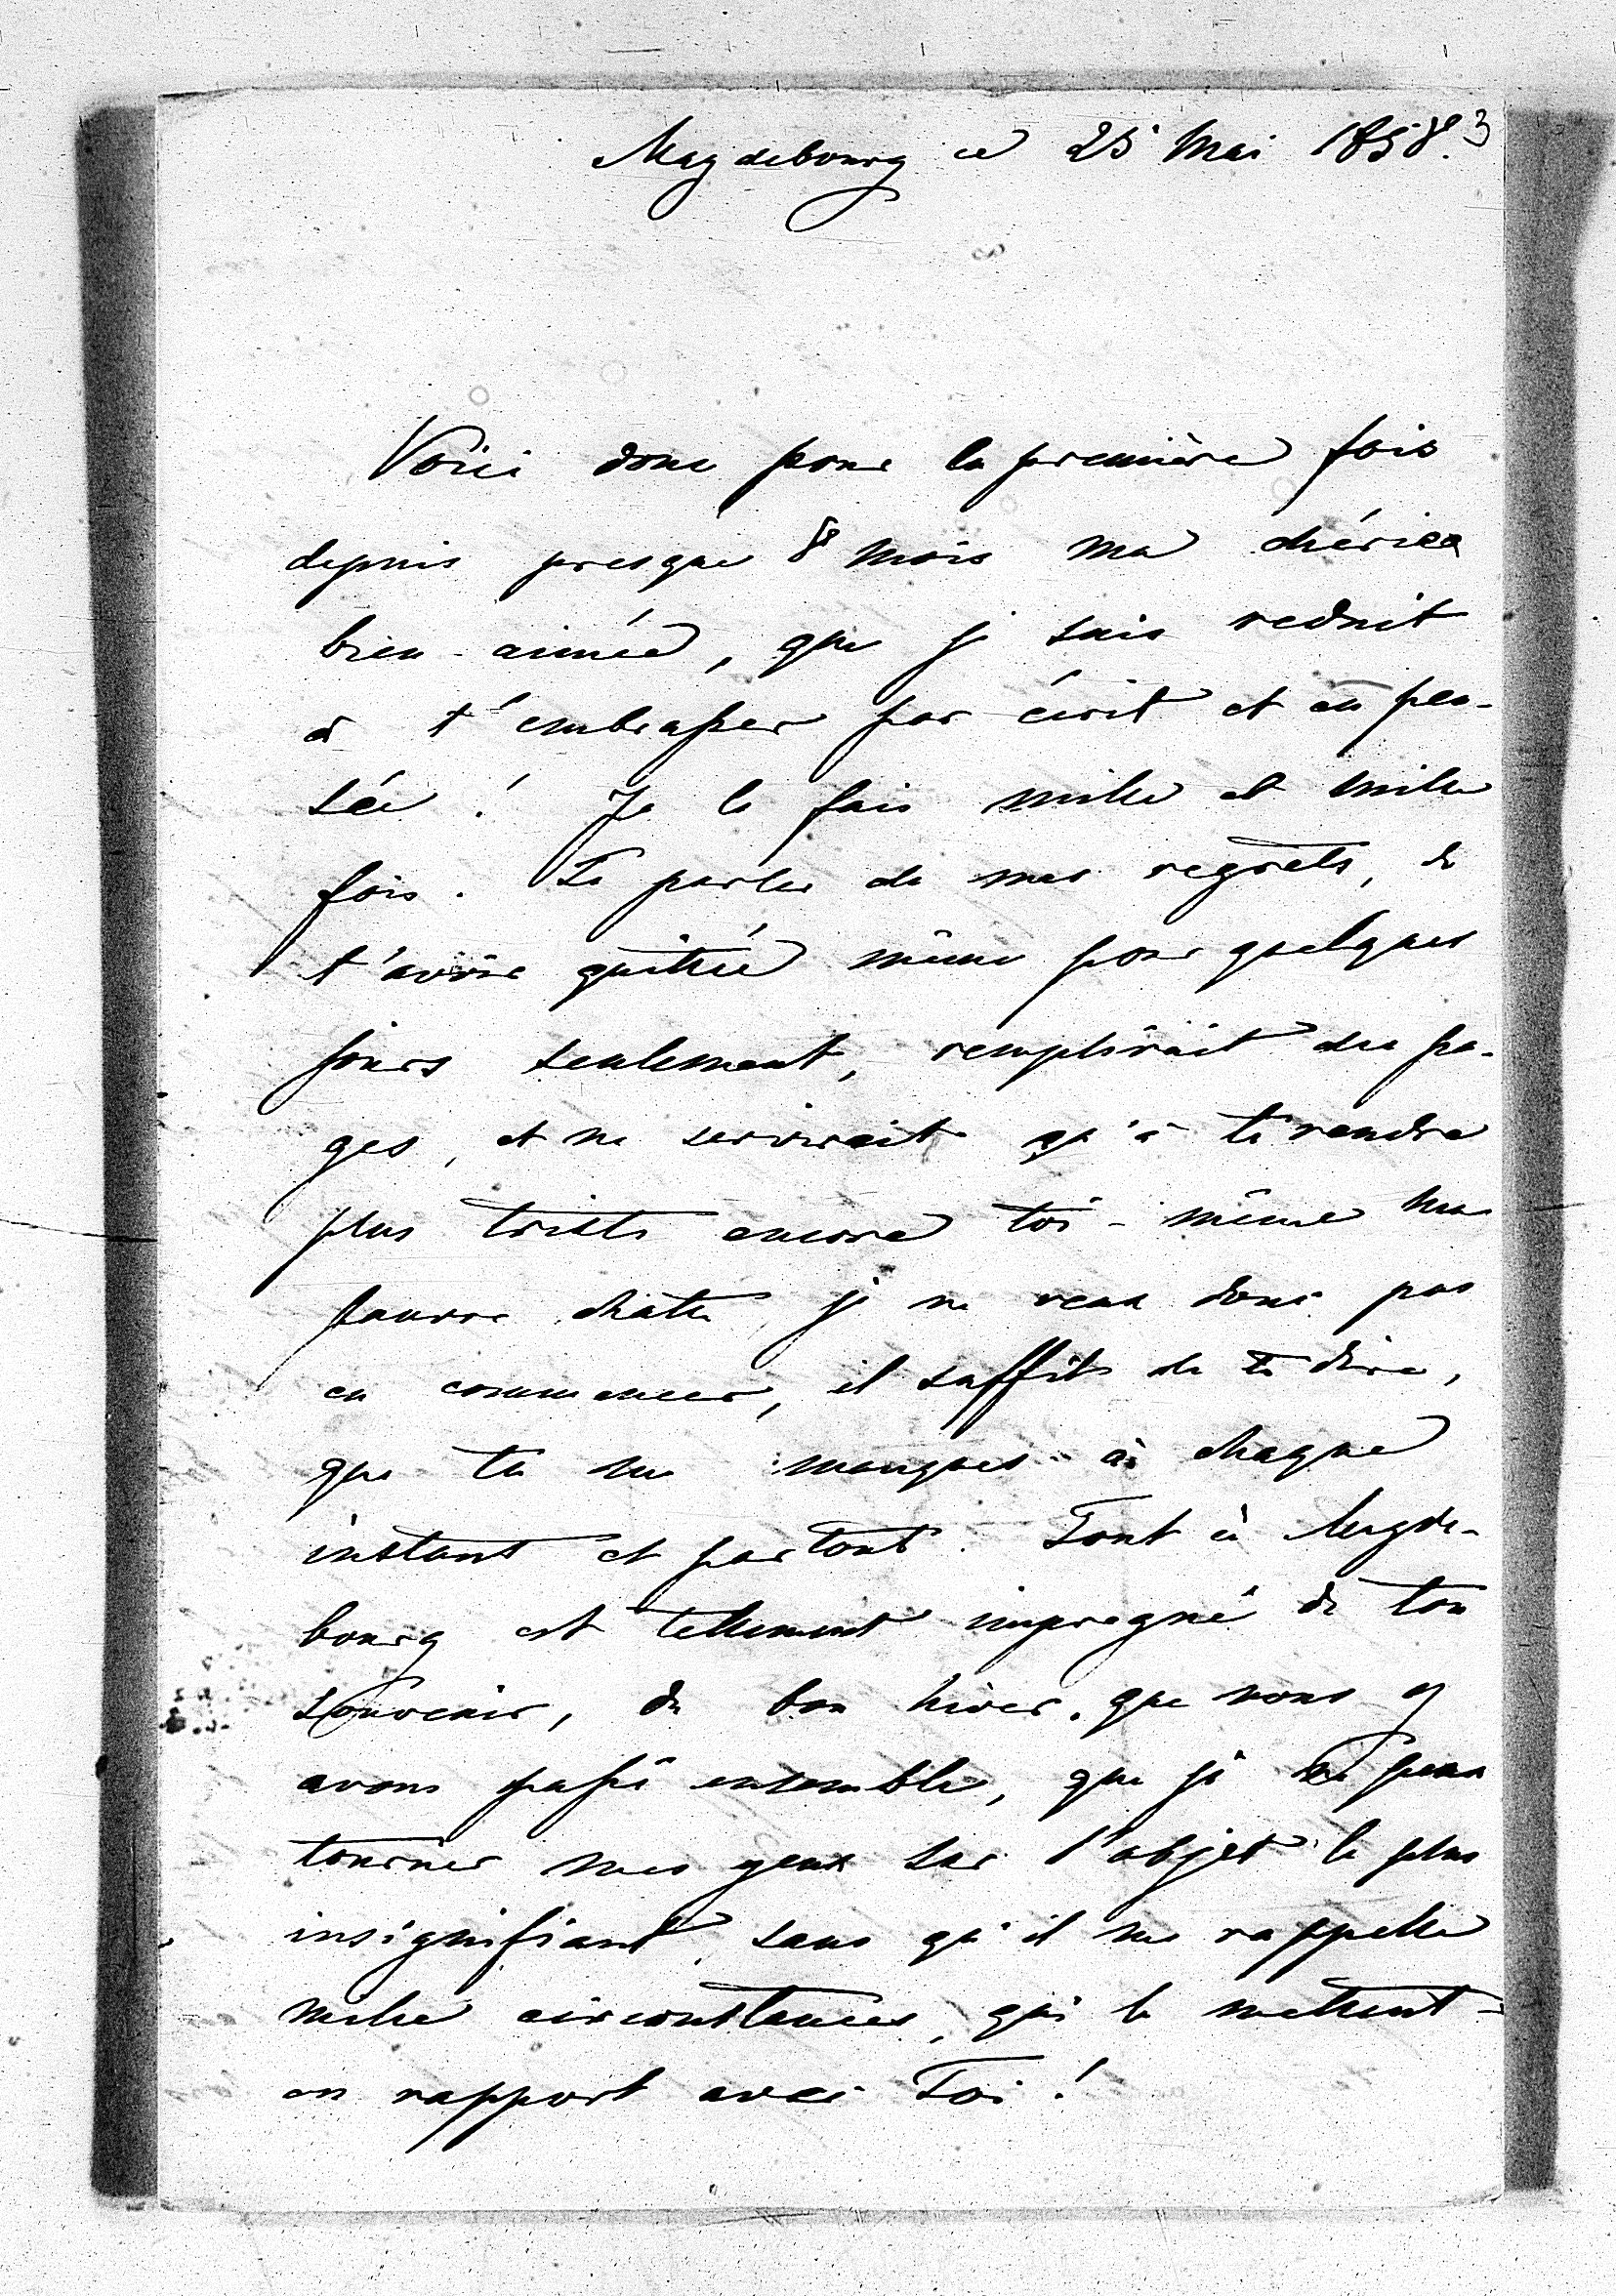 Magdebourg ce 25 Mai 1858. 3
Voici donc pour la première fois
depuis presque 8 mois ma chérie
bien-aimée, que je suis reduit
à t'embrasser par écrit et en pen-
sée! Je le fais mille et mille
fois. Te parler de mes regrèts, de
t'avoir quittée même pour quelques
jours seulement, remplirait des pa-
ges, et ne servirait qu'à te rendre
plus triste encore toi-même ma
pauvre chatte, je ne veux donc pas
en commencer, il suffit de te dire,
que tu me manques à chaque
instant et partout. Tout à Magde-
bourg est tellement impregné de ton
souvenir, du bon hiver, que nous y
avons passé ensemble, que je ne peux
tourner mes yeux sur l'objet le plus
insignifiant, sans qu'il me rappelle
mille circonstances, qui le mettent
en rapport avec Toi!